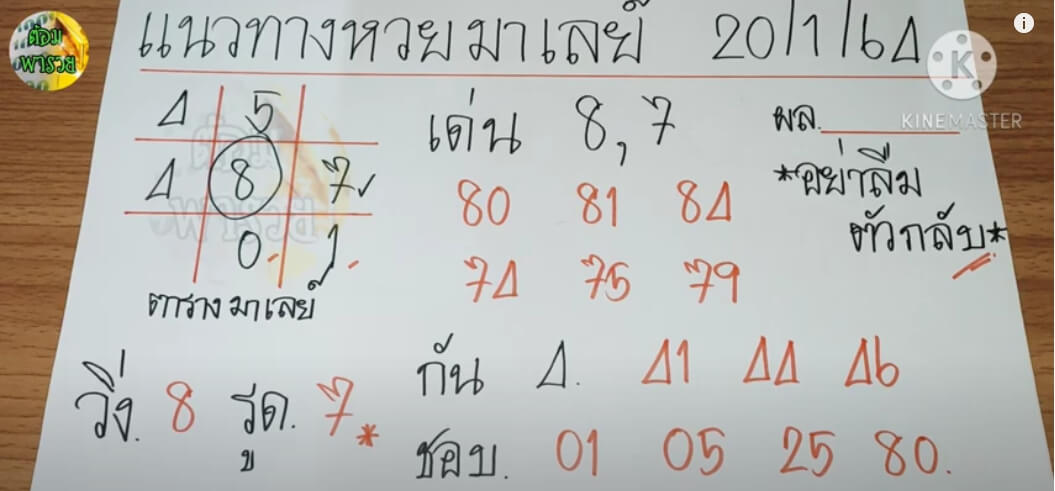 ต๋อม
พารวย
แนวทางหวยมาเลย์ 20/1/64
KINEMASTER
4 5
4 8 7
0 1
ตารางมาเลย์
เด่น 8,7
80 81 84
74 75 79
ผล.
*อย่าลืม
ตัวกลับ*
วิ่ง. 8 รูด. 7*
กัน 4. 41 44 46
ชอบ. 01 05 25 80.